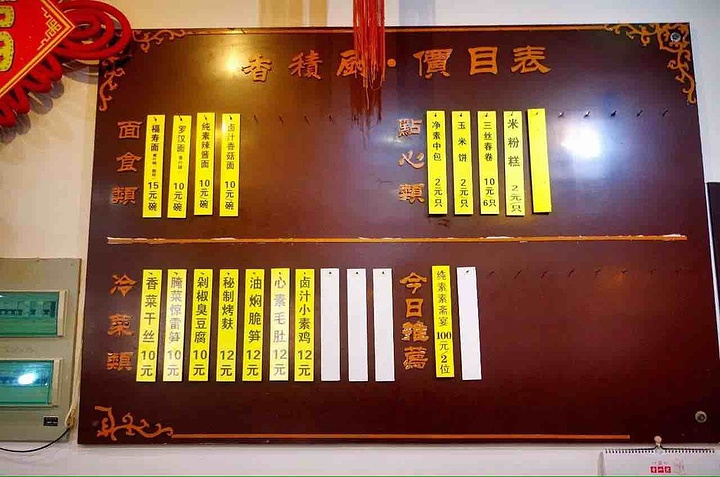 香積厨·價目表
面食類
福寿面 15元碗
罗汉面 10元碗
纯素辣酱面 10元碗
卤汁香菇面 10元碗
點心類
净素中包 2元只
玉米饼 2元只
三丝春卷 10元6只
米粉糕 2元只
冷菜類
香菜干丝 10元
腌菜惊雷笋 10元
剁椒臭豆腐 10元
秘制烤麸 12元
油焖脆笋 12元
心素毛肚 12元
卤汁小素鸡 12元
今日推薦
纯素素斋宴 100元2位